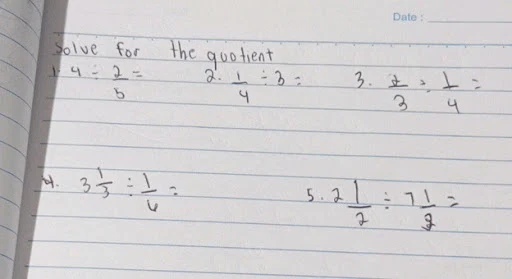 Date :
Solve for the quotient
1. 4 ÷ 2/5 = 2. 1/4 ÷ 3 = 3. /3 ÷ 1/4 =
4. 3 1/3 ÷ 1/6 = 5. 2 1/2 ÷ 7 1/2 =